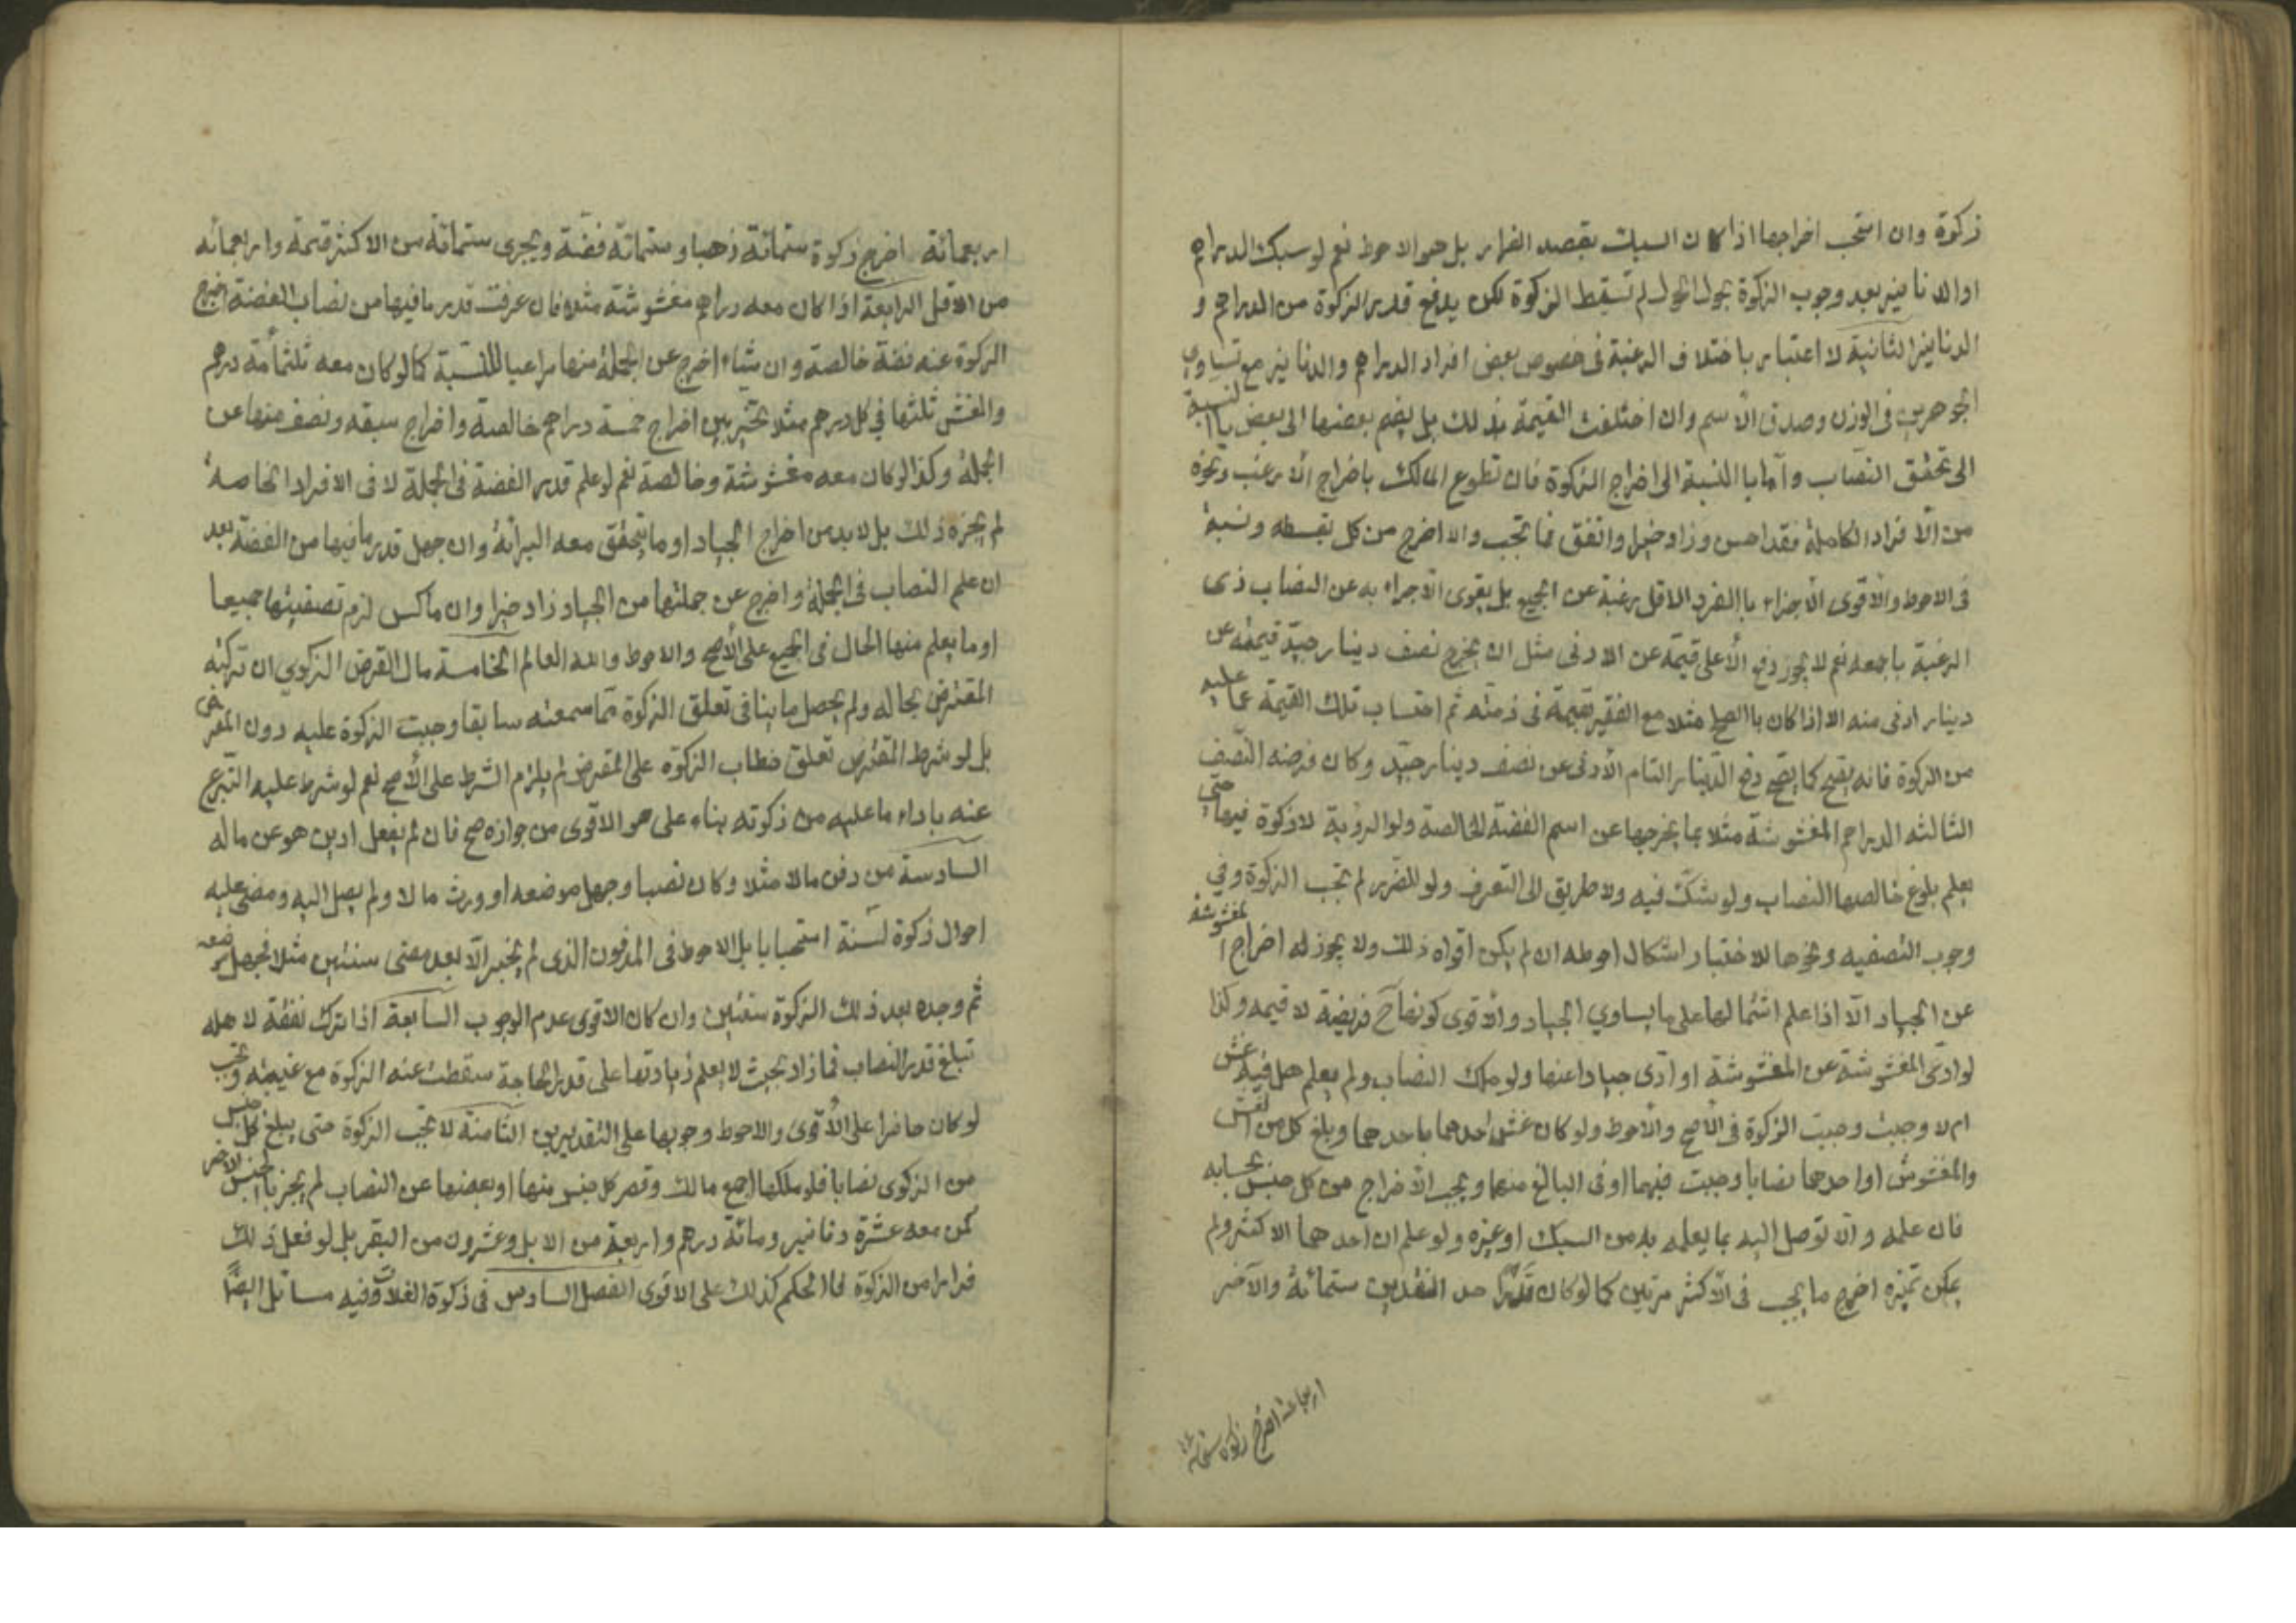 زكوة وان استحب اخراجها اذا كان السبك بقصد الفرار بل هو الاحوط نعم لو سبك الدراهم
او الدنانير بعد وجوب الزكوة بحول الحول لم تسقط الزكوة لكن يدفع قدر الزكوة من الدراهم و
الدنانير الثانية لا اعتبار باختلاف الرغبة فى خصوص بعض افراد الدراهم والدنانير مع تساوي
الجوهرين فى الوزن وصدق الأسم وان اختلفت القيمة بذلك بل يضم بعضها الى بعض باالنسبة
الى تحقق النصاب وأما باالنسبة الى اخراج الزكوة فان تطوع المالك باخراج الارغب ونحوه
من الأفراد الكاملة فقد احسن وزاد خيرا وانفق مما تحب والا اخرج من كل بقسطه ونسبة
فى الاحوط والأقوى الأجزاء باالفرد الاقل رغبة عن الجميع بل يقوى الأجزاء به عن النصاب ذى
الرغبة باجمعه نعم لا يجوز دفع الأعلى قيمة عن الادنى مثل ان يخرج نصف دينار جيد قيمته عن
دينار ادنى منه الا اذا كان باالصلح مثلا مع الفقير بقيمة فى ذمته ثم احتساب تلك القيمة عما عليه
من الزكوة فانه يصح كما يصح دفع الدينار التام الأدنى عن نصف دينار جيد وكان فرضه النصف
الثالثه الدراهم المغشوشة مثلا بما يخرجها عن اسم الفضة الخالصة ولو الردية لا زكوة فيها حتى
يعلم بلوغ خالصها النصاب ولو شك فيه ولا طريق الى التعرف ولو للضرر لم تجب الزكوة وفي
وجوب التصفيه ونحوها للاختبار اشكال احوطه ان لم يكن اقواه ذلك ولا يجوز له اخراج المغشوشة
عن الجياد الا اذا علم اشتمالها على ما يساوي الجياد والأقوى كونها ح فريضة لا قيمه وكذا
لو ادى المغشوشة عن المغشوشة او ادى جيادا عنها ولو ملك النصاب ولم يعلم هل فيه غش
ام لا وجبت وجبت الزكوة فى الأصح والأحوط ولو كان غش احدهما باحدهما وبلغ كل من الغش
والمغشوش او احدهما نصابا وجبت فيهما او فى البالغ منهما ويجب الأخراج من كل جنس بحسابه
فان علمه والا توصل اليه بما يعلمه به من السبك او غيره ولو علم ان احدهما الاكثر ولم
يمكن تميزه اخرج ما يجب فى الأكثر مرتين كما لو كان قدر احد النقدين ستمائة والآخر
اربعمائة اخرج زكوة ستمائة
اربعمائة اخرج زكوة ستمائة ذهبا وستمائة فضة ويجزى ستمائة من الاكثر قيمة واربعمائه
من الاقل الرابعة اذا كان معه دراهم مغشوشة مثلا فان عرفت قدر ما فيها من نصاب الفضة اخرج
الزكوة عنه فضة خالصة وان شاء اخرج عن الجملة منها مراعيا للنسبة كما لو كان معه ثلثمائة درهم
والغش ثلثها في كل درهم مثلا تخير بين اخراج خمسة دراهم خالصة واخراج سبعه ونصف منها عن
الجملة وكذا لو كان معه مغشوشة وخالصة نعم لو علم قدر الفضة فى الجملة لا فى الافراد الخاصة
لم يجزه ذلك بل لابد من اخراج الجياد او ما يتحقق معه البرائة وان جهل قدر ما فيها من الفضة بعد
ان علم النصاب فى الجملة واخرج عن جملتها من الجياد زاد خيرا وان ماكس لزم تصفيتها جميعا
او ما يعلم منها الحال فى الجميع على الأصح والاحوط والله العالم الخامسة مال القرض الزكوي ان تركه
المقترض بحاله ولم يحصل ما ينافى تعلق الزكوة مما سمعته سابقا وجبت الزكوة عليه دون المقرض
بل لو شرط المقترض تعلق خطاب الزكوة على المقرض لم يلزم الشرط على الأصح نعم لو شرط عليه التبرع
عنه باداء ما عليه من زكوته بناء على هو الاقوى من جوازه صح فان لم يفعل ادين هو عن ماله
السادسة من دفن مالا مثلا وكان نصبا وجهل موضعه او ورث مالا ولم يصل اليه ومضى عليه
احوال زكوة لسنة استحبابا بل الاحوط فى المدفون الذى لم يخبر الا بعد مضى سنتين مثلا فجهل موضعه
ثم وجده بعد ذلك الزكوة سنتين وان كان الاقوى عدم الوجوب السابعة اذا ترك نفقة لاهله
تبلغ قدر النصاب فما زاد بحيث لا يعلم زيادتها على قدر الحاجة سقطت عنه الزكوة مع غيبته وتجب
لو كان حاضرا على الأقوى والاحوط وجوبها على التقديرين الثامنة لا تجب الزكوة حتى يبلغ كل جنس
من الزكوى نصابا فلو ملكها اجمع مالك وقصر كل جنس منها او بعضها عن النصاب لم يجز باالجنس الاخر
كمن معه عشرة دنانير ومائة درهم واربعة من الابل وعشرون من البقر بل لو فعل ذلك
فرارا من الزكوة فاالحكم كذلك على الاقوى الفصل السادس فى زكوة الغلات وفيه مسائل ايضا